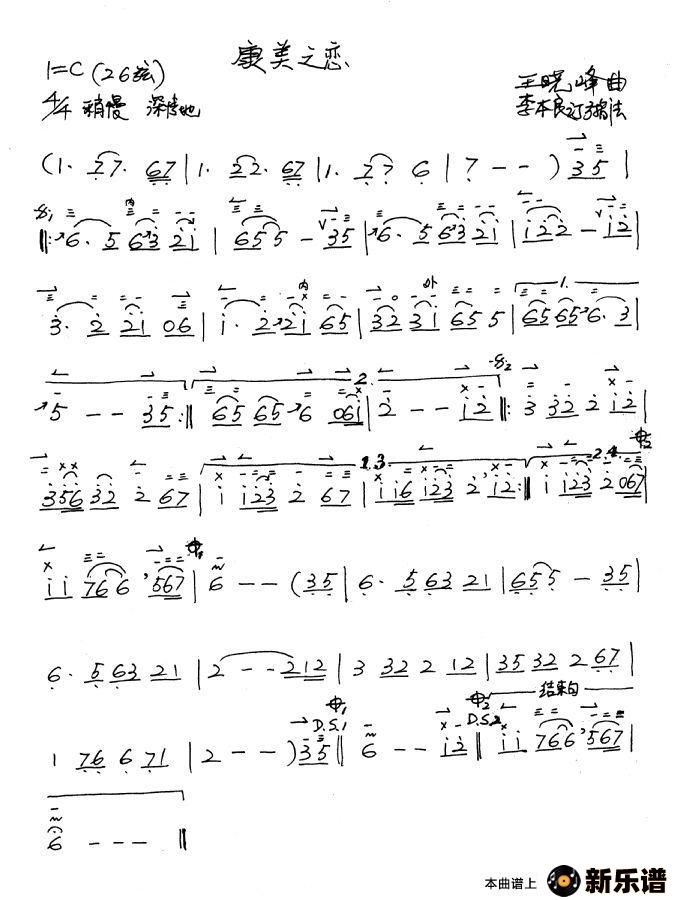 康美之恋
1=C (26弦)
4/4 稍慢 深情地
王晓峰曲
李本良订弓指法
(1. 77. 67 | 1. 22. 67 | 1. 77 6 | 7 - - ) 35 |
𝄋1 ‖: 6. 5 63 21 | 655 - 35 | 6. 5 63 21 | 122 - 12 |
内
3. 2 21 06 | 1. 2 21 65 | 32 31 65 5 | 65 65 6. 3 |
内 外 1.
5 - - 35 :‖ 65 65 6 061 | 2 - - 12 ‖: 3 32 2 12 |
2. 𝄋2
356 32 2 67 | 1 123 2 67 | 1 16 123 2, 12 :‖ 1 123 2 067 |
1.3. 2.4.
11 766, 567 | 6 - - (35 | 6. 5 63 21 | 655 - 35 |
6. 5 63 21 | 2 - - 212 | 3 32 2 12 | 35 32 2 67 |
1 76 6 71 | 2 - - ) 35 ‖ 6 - - 12 ‖ 11 766, 567 |
D.S.1 D.S.2 结束句
6 - - - ‖
本曲谱上 新乐谱